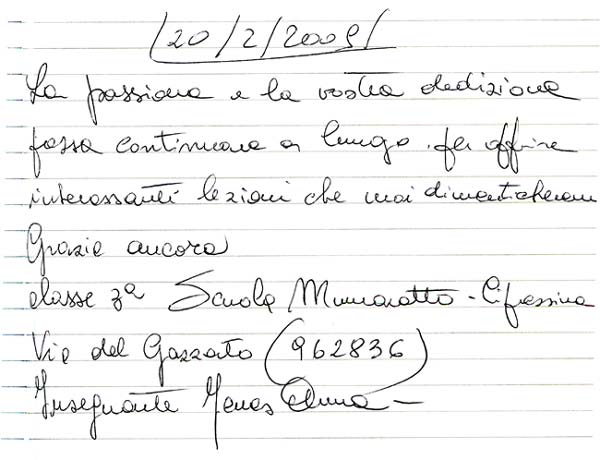 20/2/2009
La passione e la vostra dedizione
possa continuare a lungo per offrire
interessanti lezioni che mai dimenticheremo
Grazie ancora
classe 3ª Scuola Munaretto -
Via del Gazzato (962836)
Insegnante Anna -